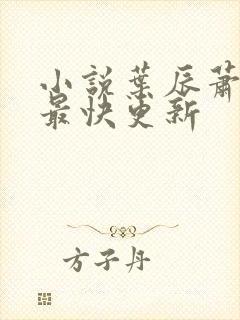 小説葉辰蕭
最快更新
方子丹